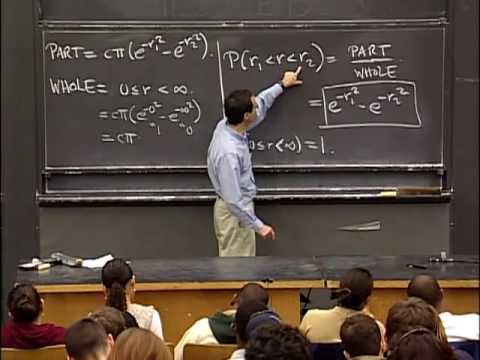 PART = cπ(e^{-r₁²} - e^{-r₂²}).
WHOLE = 0 ≤ r < ∞.
= cπ(e^{-0²} - e^{-∞²})
" "
1 0
= cπ
P(r₁ < r < r₂) = PART
WHOLE
= e^{-r₁²} - e^{-r₂²}
0 ≤ r < ∞) = 1.